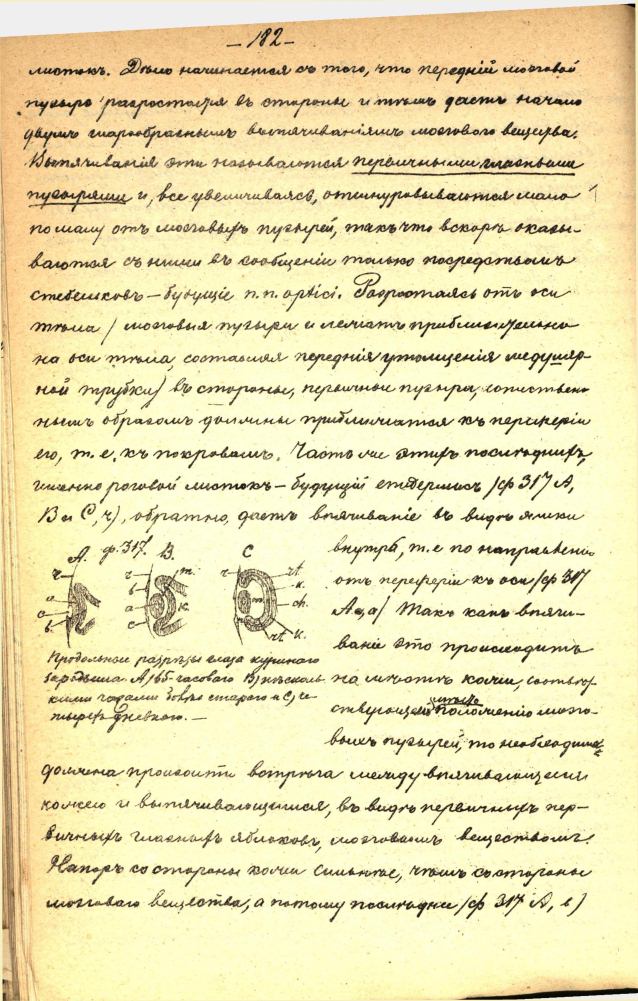 — 182 —
листокъ. Дѣло начинается съ того, что передній мозговой
пузырь разростается въ стороны и тѣмъ даетъ начало
двумъ шарообразнымъ вытячиваніямъ мозгового вещества.
Вытячиванія эти называются первичными глазными
пузырями и, все увеличиваясь, отшнуровываются мало
по малу отъ мозговыхъ пузырей, такъ что вскорѣ оказы-
ваются съ ними въ сообщеніи только посредствомъ
стебельковъ — будущіе n.n. optici. Разростаясь отъ оси
тѣла (мозговыя пузыри и лежатъ приблизительно
на оси тѣла, составляя переднія утолщенія медулляр-
ной трубки) въ стороны, первичные пузыри, естествен-
нымъ образомъ должны приближаться къ периферіи
его, т. е. къ покровамъ. Часть же этихъ послѣднихъ,
именно роговой листокъ — будущій епидермисъ (ф 317 А,
В и С, ч), обратно, даетъ впячиваніе въ видѣ ямки
внутрь, т. е по направленію
отъ переферіи къ оси (ф 317
А, а) Такъ какъ впячи-
ваніе это происходитъ
на мѣстѣ кожи, соотвѣт-
ствующемъ мѣсту положенію мозго-
выхъ пузырей, то необходимо
А. ф. 317. В. С
ч а с в
ч в а с т. к.
ч rt к. ch. т. rt к.
Продольные разрѣзы глаза куринаго
зародыша. А) 65-часоваго В) нѣсколь-
кими часами болѣе стараго и С) че-
тырехъ дневнаго. —
должна произойти встрѣча между впячивающеюся
кожею и вытячивающимися, въ видѣ первичныхъ пер-
вичныхъ глазныхъ яблоковъ, мозговымъ веществомъ.
Напоръ со стороны кожи сильнѣе, чѣмъ со стороны
мозговаго вещества, а потому послѣднее (ф 317 А, в)